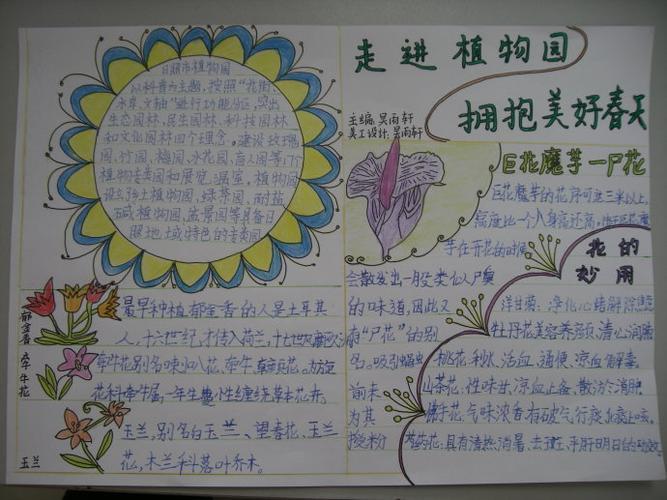 走进植物园
拥抱美好春天
主编:吴雨轩
美工设计:吴雨轩
日照市植物园
以科普为主题,按照“北街、
水库、文轴”进行功能分区,突出
生态园林、民生园林、科技园林
和文化园林四个理念。建设玫瑰
园、竹园、梅园、水花园、盲人园等17个
植物专类园和展览温室。植物园
设乡土植物园、绿茶园、耐盐
碱植物园、盆景园等具备日
照地域特色的专类园
巨花魔芋—尸花
巨花魔芋的花序可达三米以上,
高度比一个人身高还高。
芋在开花的时候
会散发出一股类似人尸臭
的味道,因此又
有“尸花”的别
名。吸引
前来
为其
授粉
花的
妙用
洋甘菊:净化心绪解除
牡丹花:美容养颜、清心润肺
桃花:利水、活血、通便、凉血解毒
山茶花:性味甘、凉血止备、散淤、消肿
佛手花:气味浓香有破气行痰止咳
具有清热、消暑、平肝明目的
郁金香
最早种植郁金香的人是土耳其
人,十六世纪,才传入荷兰,十七世纪
牵牛花
牵牛花别名喇叭花、牵牛、
花科牵牛属,一年生蔓性缠绕草本花卉。
玉兰
玉兰,别名白玉兰、望春花、玉兰
花,木兰科落叶乔木。